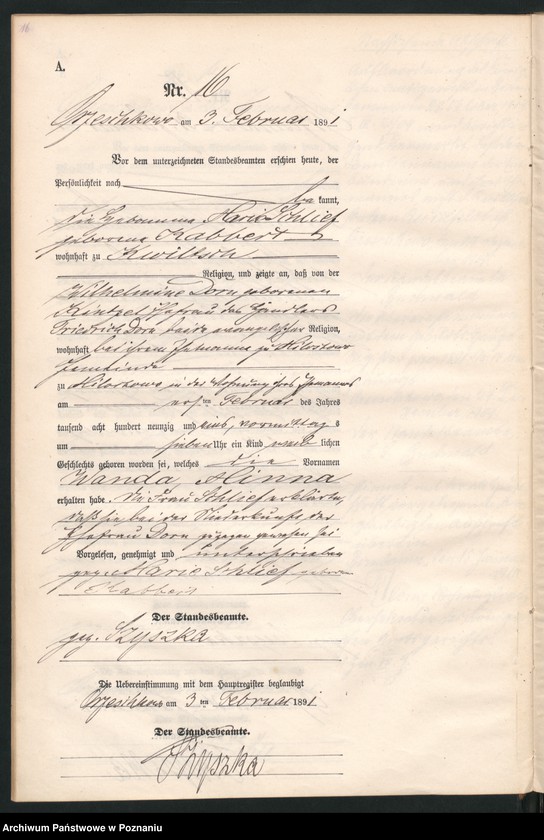 16
A.
Nr. 16
Orzeschkowo am 3. Februar 1891
Vor dem unterzeichneten Standesbeamten erschien heute, der
Persönlichkeit nach
be kannt,
die Hebamme Marie Schlief
geborene Kabbert
wohnhaft zu Kwiltsch
Religion, und zeigte an, daß von der
Wilhelmine Dorn geborenen
Kintzel Ehefrau des Händlers
Friedrich Dorn beide evangelischer Religion,
wohnhaft bei ihrem Ehemanne zu Milostowo
Gemeinde
zu Milostowo in der Wohnung ihres Ehemannes
am ersten Februar des Jahres
tausend acht hundert neunzig und eins, vormittag s
um sieben Uhr ein Kind weib lichen
Geschlechts geboren worden sei, welches die Vornamen
Wanda, Minna
erhalten habe. Die Frau Schlief erklärte,
daß sie bei der Niederkunft der
Ehefrau Dorn zugegen gewesen sei
Vorgelesen, genehmigt und unterschrieben
gez. Marie Schlief geborene
Kabbert
Der Standesbeamte.
gez. Szyszka
Die Uebereinstimmung mit dem Hauptregister beglaubigt
Orzeschkowo am 3 ten Februar 1891
Der Standesbeamte.
Szyszka
Archiwum Państwowe w Poznaniu